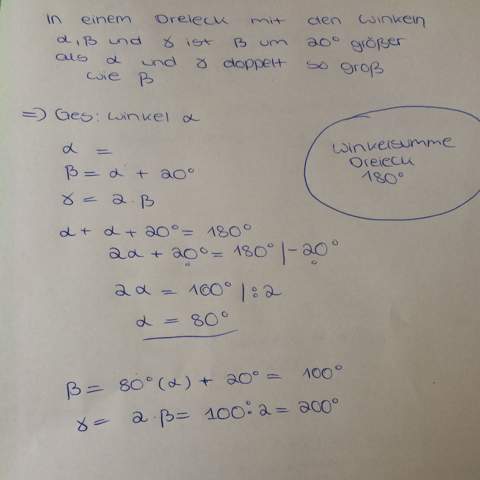 In einem Dreieck mit den Winkeln
α, β und γ ist β um 20° größer
als α und γ doppelt so groß
wie β
=> Ges: Winkel α
Winkelsumme
Dreieck
180°
α =
β = α + 20°
γ = 2 · β
α + α + 20° = 180°
2α + 20° = 180° | - 20°
2α = 160° | : 2
α = 80°
β = 80° (α) + 20° = 100°
γ = 2 · β = 100° · 2 = 200°